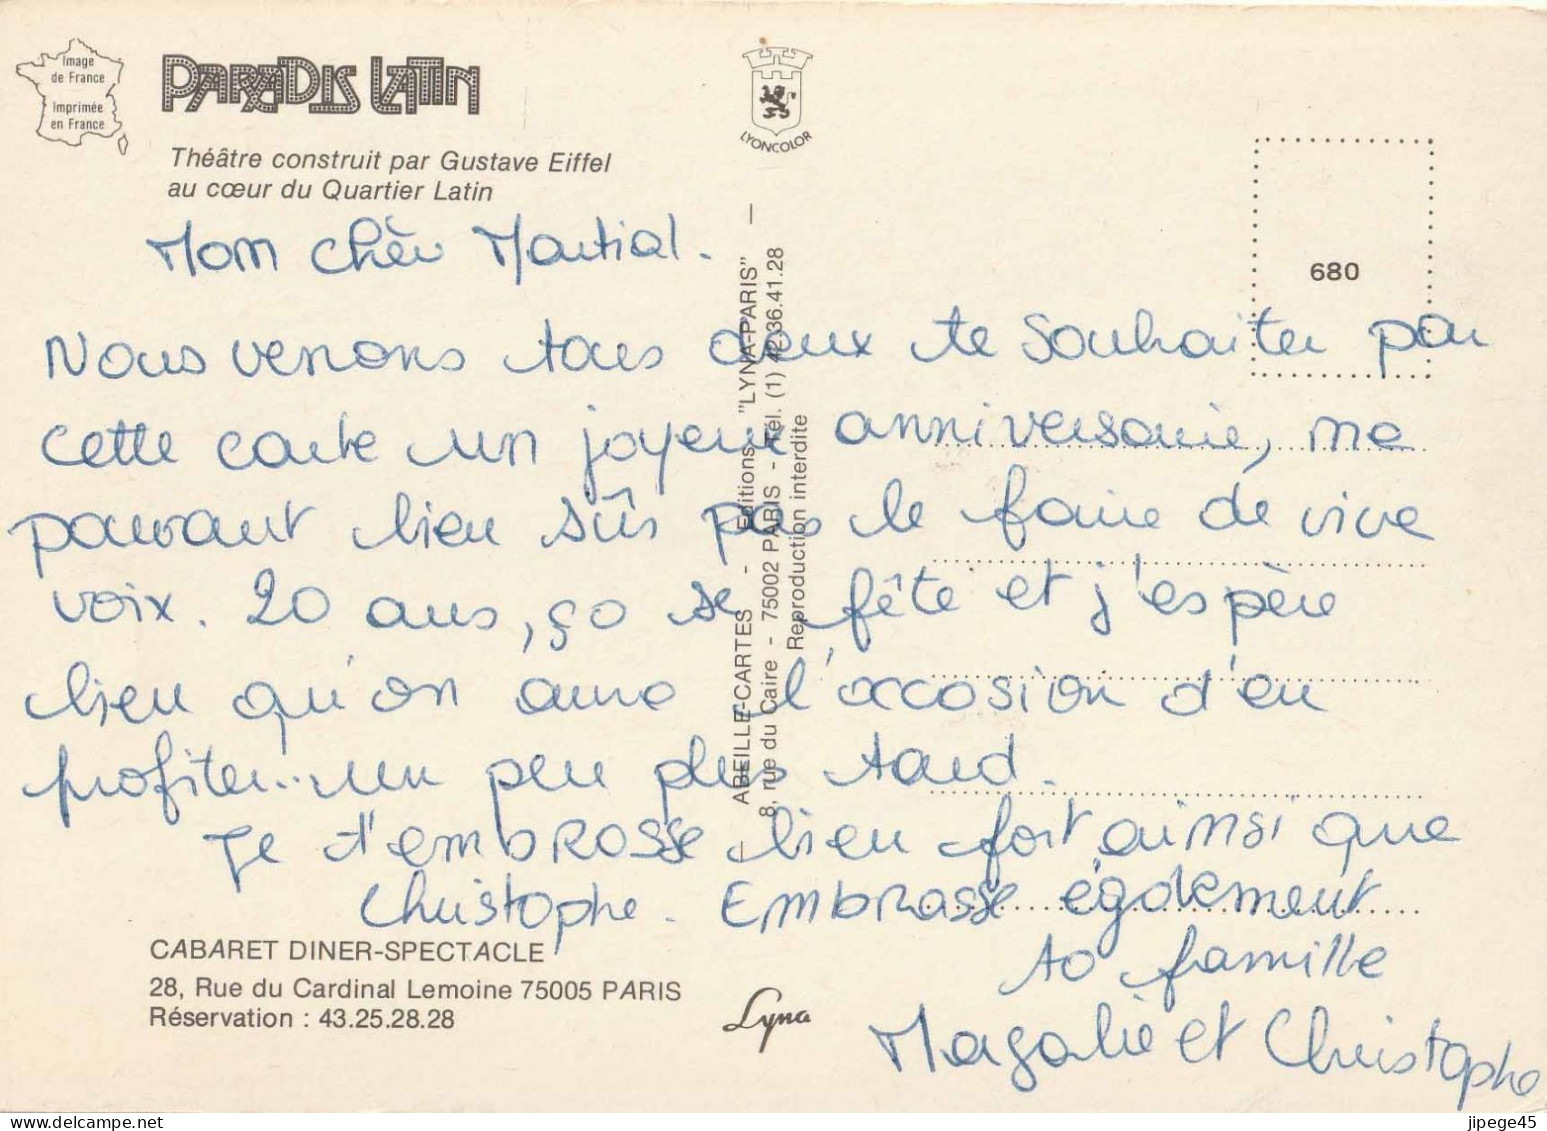 Image
de France
Imprimée
en France
PARADIS LATIN
Théâtre construit par Gustave Eiffel
au cœur du Quartier Latin
LYONCOLOR
680
Mon chèr Martial.
Nous venons tous deux te souhaiter par
cette carte un joyeux anniversaire, ne
pouvant bien sûr pas le faire de vive
voix. 20 ans, ça se fête et j'espère
bien qu'on aura l'occasion d'en
profiter.. un peu plus tard.
Je t'embrasse bien fort ainsi que
Christophe. Embrasse également
ta famille
Magalie et Christophe
ABEILLE-CARTES - Editions "LYNA-PARIS" —
8, rue du Caire - 75002 PARIS - Tél. (1) 42.36.41.28
Reproduction interdite
CABARET DINER-SPECTACLE
28, Rue du Cardinal Lemoine 75005 PARIS
Réservation : 43.25.28.28
Lyna
jlpege45